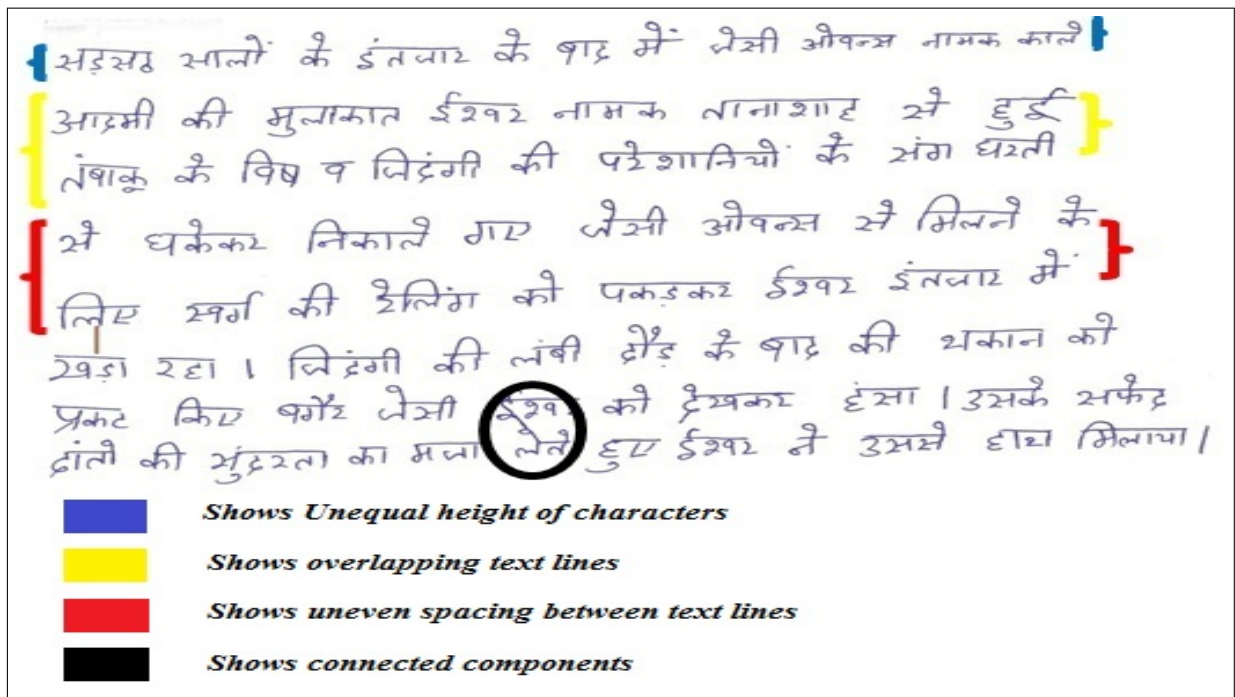 सड़सठ सालों के इंतजार के बाद में जेसी ओवन्स नामक काले
आदमी की मुलाकात ईश्वर नामक तानाशाह से हुई
तंबाकू के विष व जिदंगी की परेशानियों के संग धरती
से धकेकर निकाले गए जेसी ओवन्स से मिलने के
लिए स्वर्ग की रेलिंग को पकड़कर ईश्वर इंतजार में
खड़ा रहा । जिदंगी की लंबी दौड़ के बाद की थकान को
प्रकट किए बगैर जेसी ईश्वर को देखकर हंसा । उसके सफेद
दांतो की सुंदरता का मजा लेते हुए ईश्वर ने उससे हाथ मिलाया ।
Shows Unequal height of characters
Shows overlapping text lines
Shows uneven spacing between text lines
Shows connected components